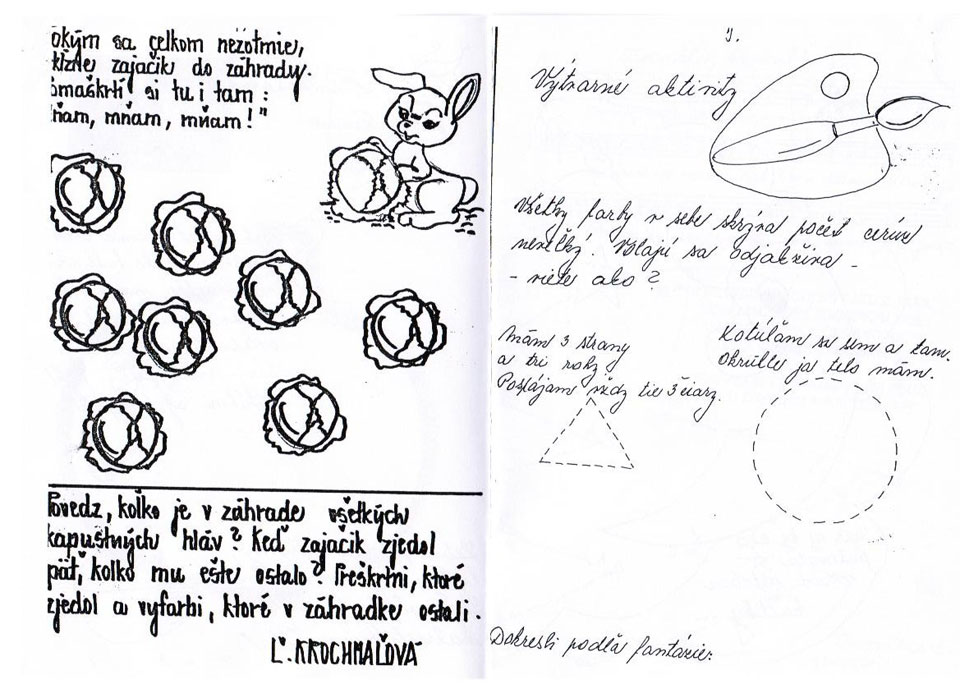 okým sa celkom nezotmie,
kĺzne zajačik do záhrady.
omaškrtí si tu i tam :
ňam, mňam, mňam!"
Povedz, koľko je v záhrade všetkých
kapustných hláv? Keď zajačik zjedol
päť, koľko mu ešte ostalo? Preškrtni, ktoré
zjedol a vyfarbi, ktoré v záhradke ostali.
Ľ. KROCHMAĽOVÁ
Výtvarné aktivity
Všetky farby v sebe skrýva počet
neveľký. Volajú sa odjakživa -
- viete ako?
Mám 3 strany
a tri rohy.
Pospájam vždy tie 3 čiary.
Kotúľam sa sem a tam.
Okrúhle ja telo mám.
Dokresli podľa fantázie: